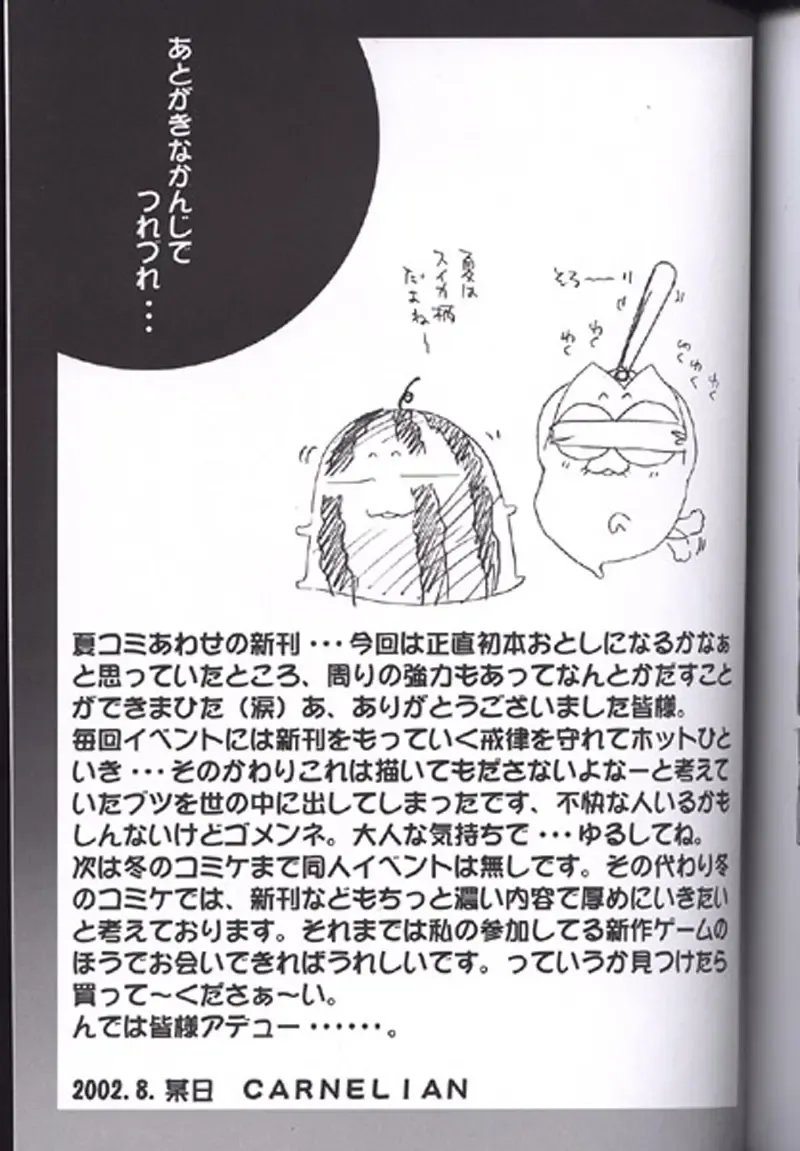 あとがきなかんじで
つれづれ・・・
夏は
スイカ柄
だよね〜
そろ〜〜り
わく
わく
わく
わく
わく
夏コミあわせの新刊・・・今回は正直初本おとしになるかなぁ
と思っていたところ、周りの強力もあってなんとかだすこと
ができまひた（涙）あ、ありがとうございました皆様。
毎回イベントには新刊をもっていく戒律を守れてホットひと
いき・・・そのかわりこれは描いてもださないよなーと考えて
いたブツを世の中に出してしまったです、不快な人いるかも
しんないけどゴメンネ。大人な気持ちで・・・ゆるしてね。
次は冬のコミケまで同人イベントは無しです。その代わり冬
のコミケでは、新刊などもちっと濃い内容で厚めにいきたい
と考えております。それまでは私の参加してる新作ゲームの
ほうでお会いできればうれしいです。っていうか見つけたら
買って〜くださぁ〜い。
んでは皆様アデュー・・・・・・。
2002.8.某日　CARNELIAN